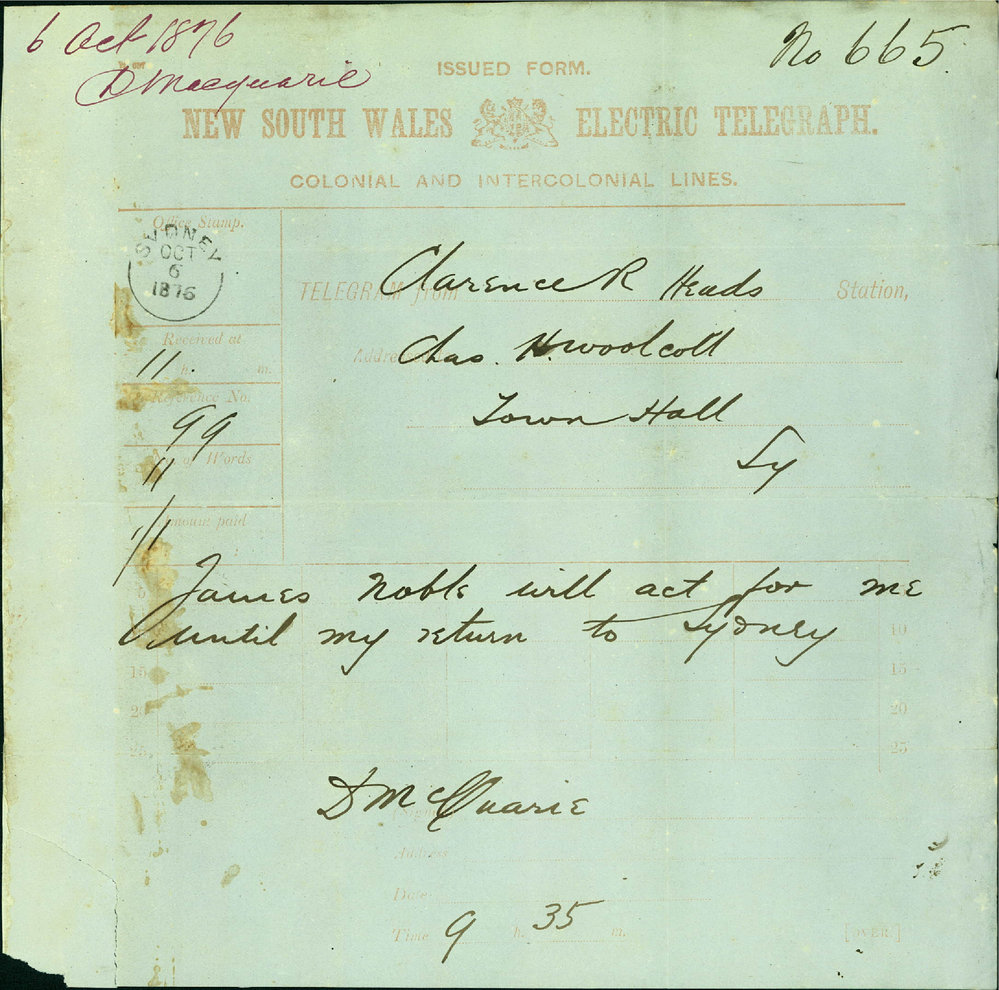 6 Oct 1876
D Macquarie
No 665
ISSUED FORM.
NEW SOUTH WALES ELECTRIC TELEGRAPH.
COLONIAL AND INTERCOLONIAL LINES.
Office Stamp.
SYDNEY
OCT
6
1876
TELEGRAM from Clarence R Heads Station,
Received at
11 h. m.
Addressed Chas. H. Woolcott
Reference No.
99
Town Hall
of Words
11
Sy
Amount paid
1/1
James Noble will act for me
until my return to Sydney
5
10
15
15
20
20
25
25
D McQuarie
Address
Date
Time 9 h. 35 m.
[OVER.]